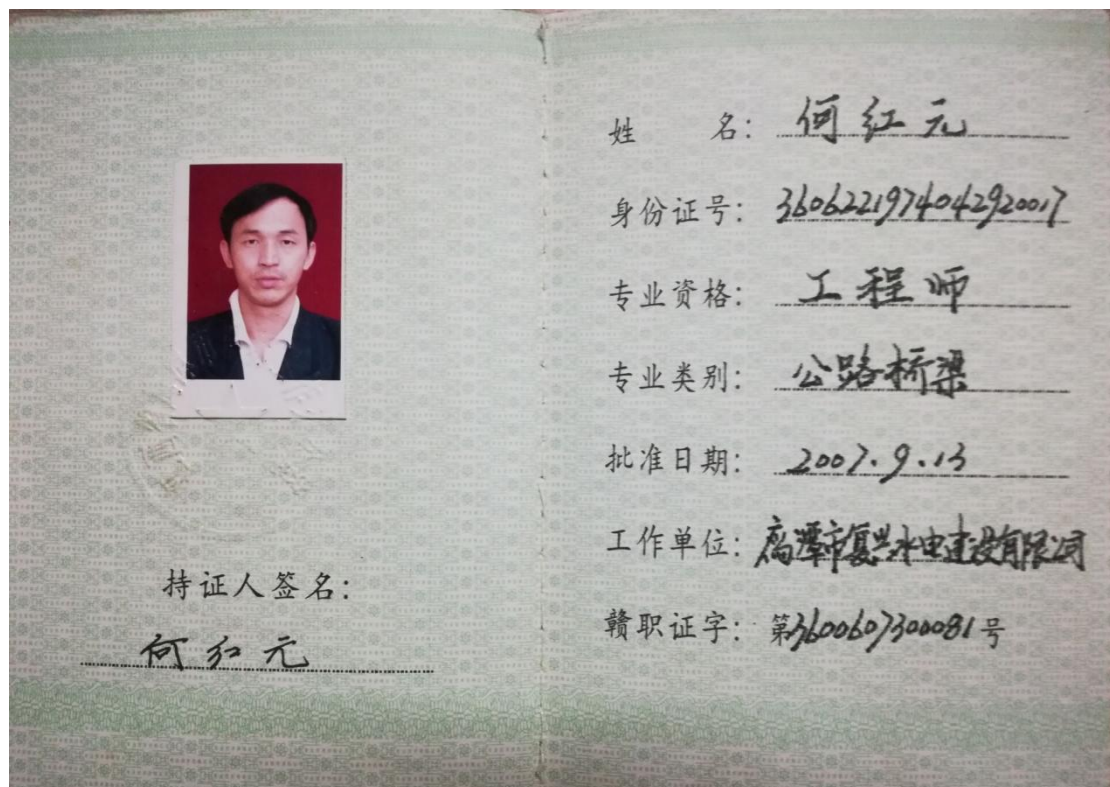 持证人签名:
何红元
姓 名: 何红元
身份证号: 360622197404292001７
专业资格: 工程师
专业类别: 公路桥梁
批准日期: 2007.9.13
工作单位: 鹰潭市复兴水电建设有限公司
赣职证字: 第3600607300081号